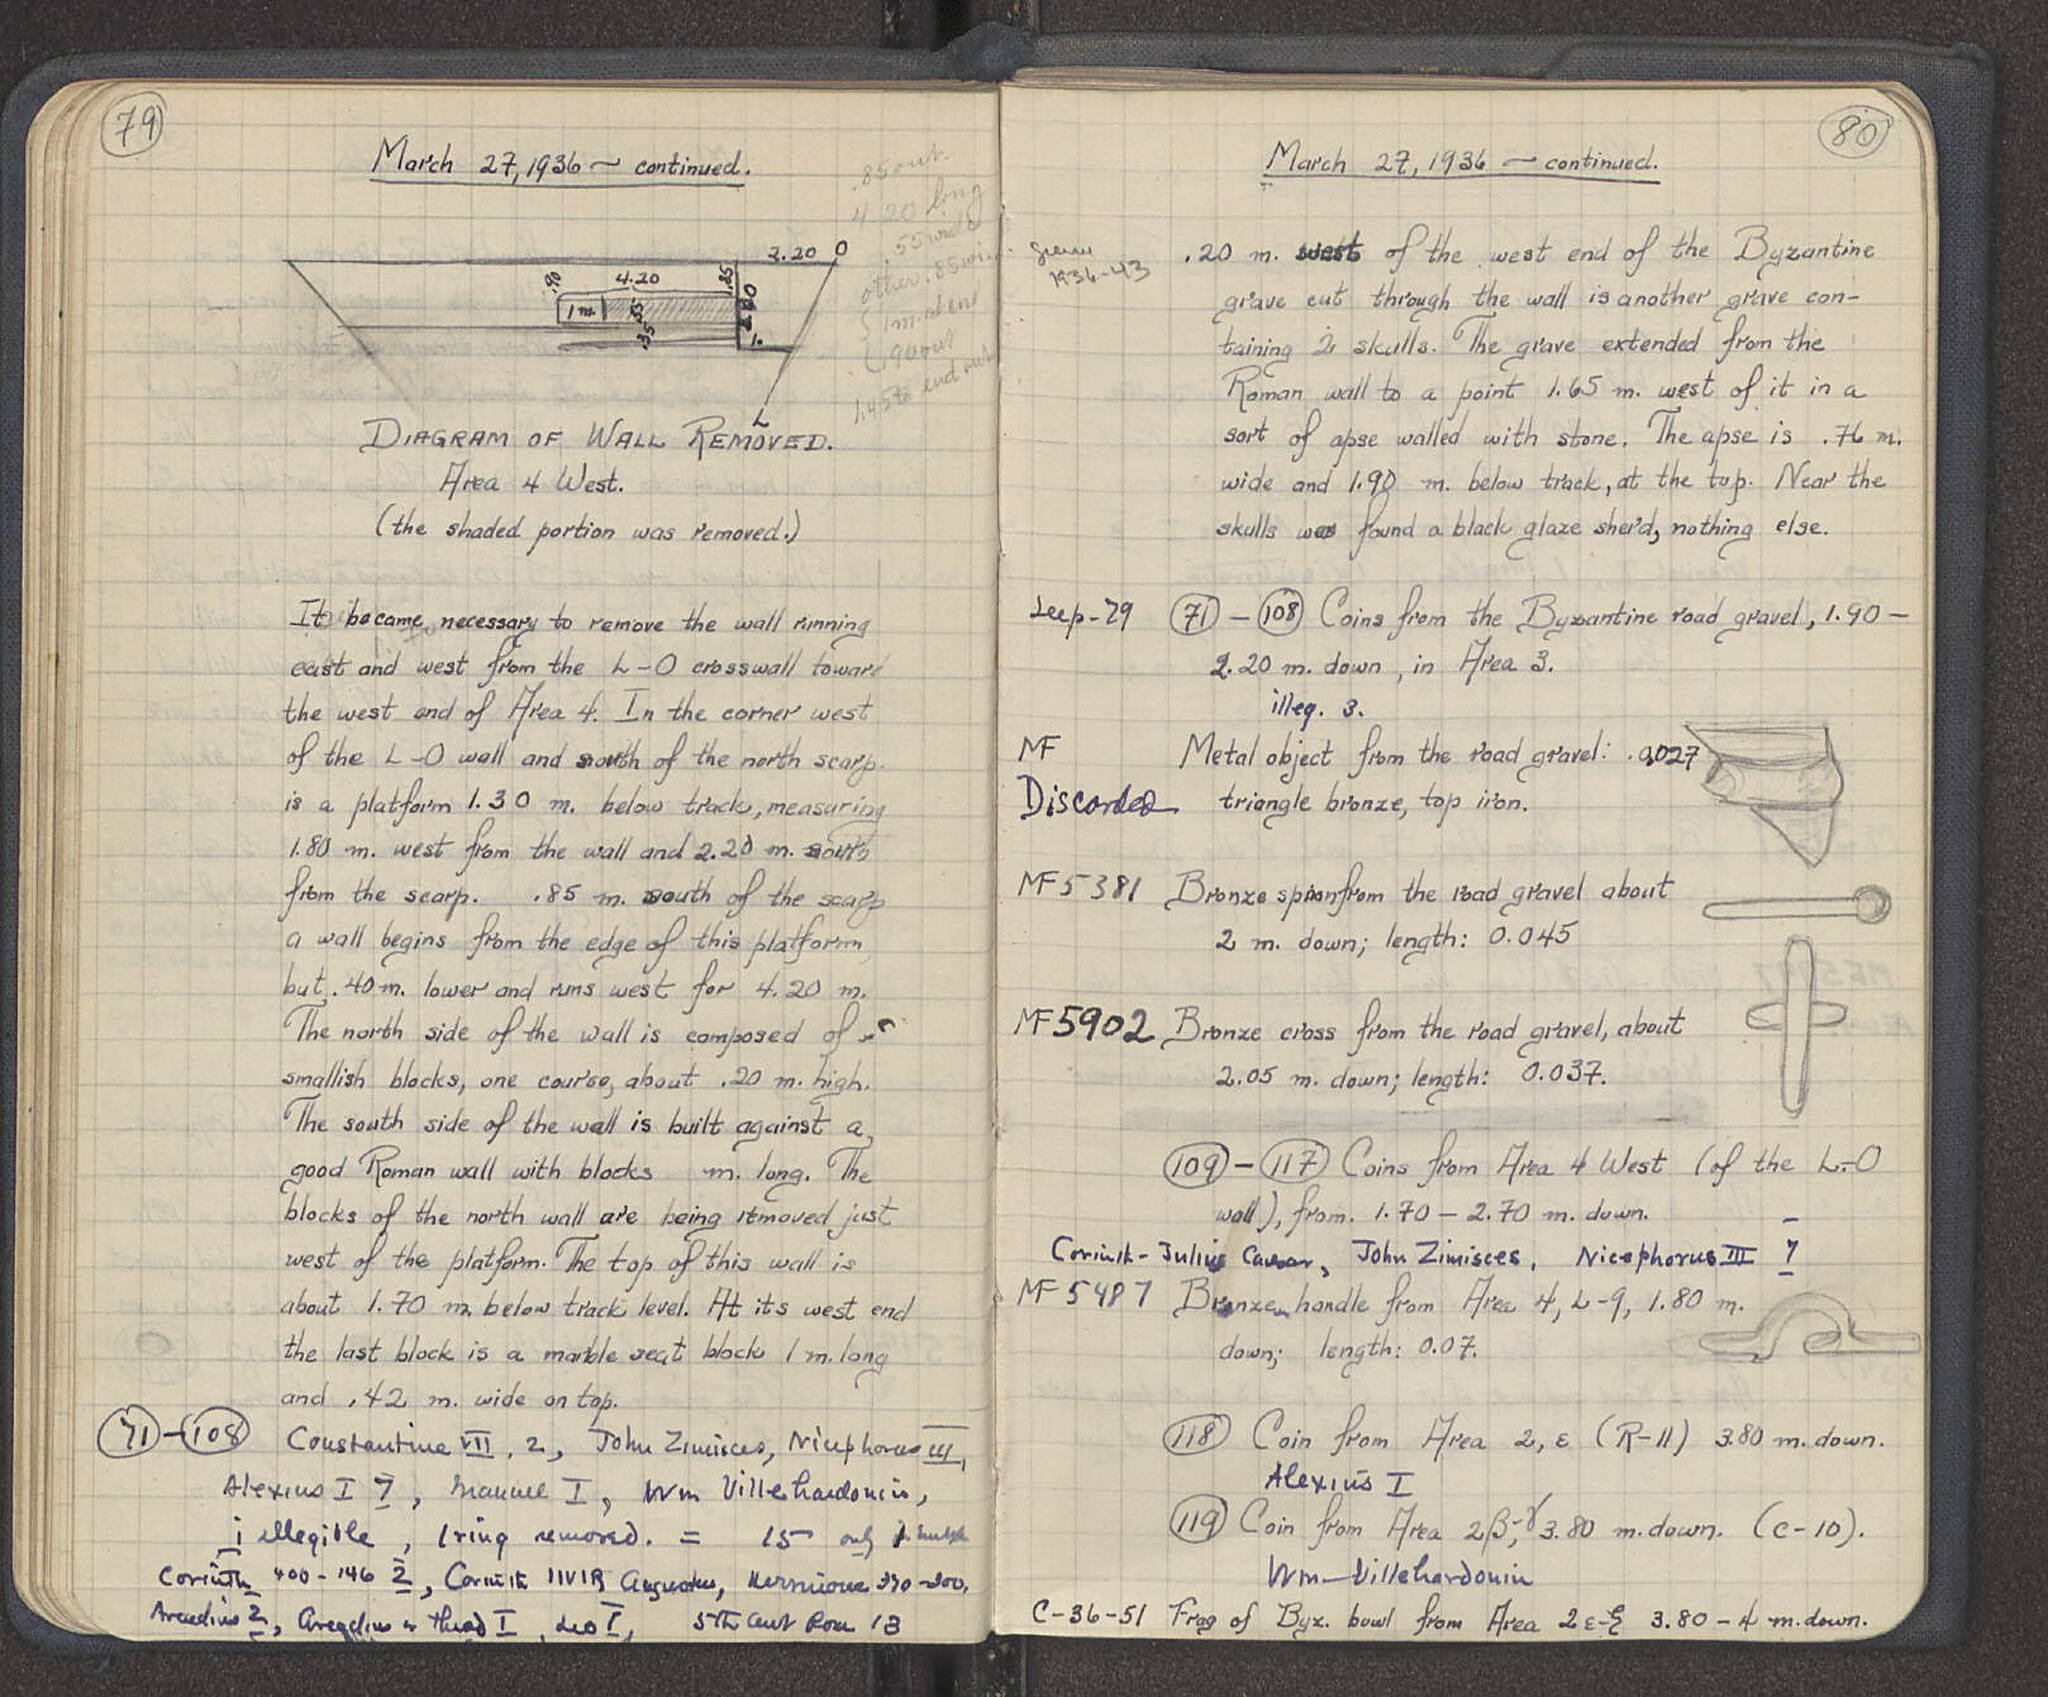 79
March 27, 1936 ~ continued.
.85 out.
4.20 long
.55 wide
other .85
1m.
.90 out
1.45 to end
2.20 O
.90 4.20 .85
1 m. .55 2.20
.35 1.
L
DIAGRAM OF WALL REMOVED.
Area 4 West.
(the shaded portion was removed.)
It became necessary to remove the wall running
east and west from the L-O crosswall toward
the west end of Area 4. In the corner west
of the L-O wall and south of the north scarp
is a platform 1.30 m. below track, measuring
1.80 m. west from the wall and 2.20 m. south
from the scarp. .85 m. south of the scarp
a wall begins from the edge of this platform
but .40 m. lower and runs west for 4.20 m.
The north side of the wall is composed of
smallish blocks, one course, about .20 m. high.
The south side of the wall is built against a
good Roman wall with blocks m. long. The
blocks of the north wall are being removed just
west of the platform. The top of this wall is
about 1.70 m. below track level. At its west end
the last block is a marble seat block 1 m. long
and .42 m. wide on top.
71 - 108 Constantine VII, 2, John Zimisces, Nicephorus III,
Alexius I 7, Manuel I, Wm Villehardouin,
1 illegible, 1 ring removed. = 15 only
Corinth 400-146 2, Corinth IIVIR Augustus, Hermione 370-300,
Arcadius 2, Arcadius or Theod I, Leo I, 5th cent Rom 13
80
March 27, 1936 ~ continued.
grave
1936-43
.20 m. west of the west end of the Byzantine
grave cut through the wall is another grave con-
taining 2 skulls. The grave extended from the
Roman wall to a point 1.65 m. west of it in a
sort of apse walled with stone. The apse is .76 m.
wide and 1.90 m. below track, at the top. Near the
skulls was found a black glaze sherd, nothing else.
See p-79 71 - 108 Coins from the Byzantine road gravel, 1.90 -
2.20 m. down, in Area 3.
illeg. 3.
MF Metal object from the road gravel: 0.027
Discarded triangle bronze, top iron.
MF 5381 Bronze spoon from the road gravel about
2 m. down; length: 0.045
MF 5902 Bronze cross from the road gravel, about
2.05 m. down; length: 0.037.
109 - 117 Coins from Area 4 West (of the L-O
wall), from 1.70 - 2.70 m. down.
Corinth - Julius Caesar, John Zimisces, Nicephorus III 7
MF 5487 Bronze handle from Area 4, L-9, 1.80 m.
down; length: 0.07.
118 Coin from Area 2, ε (R-11) 3.80 m. down.
Alexius I
119 Coin from Area 2β-γ 3.80 m. down. (C-10).
Wm-Villehardouin
C-36-51 Frag of Byz. bowl from Area 2 ε-ξ 3.80 - 4 m. down.